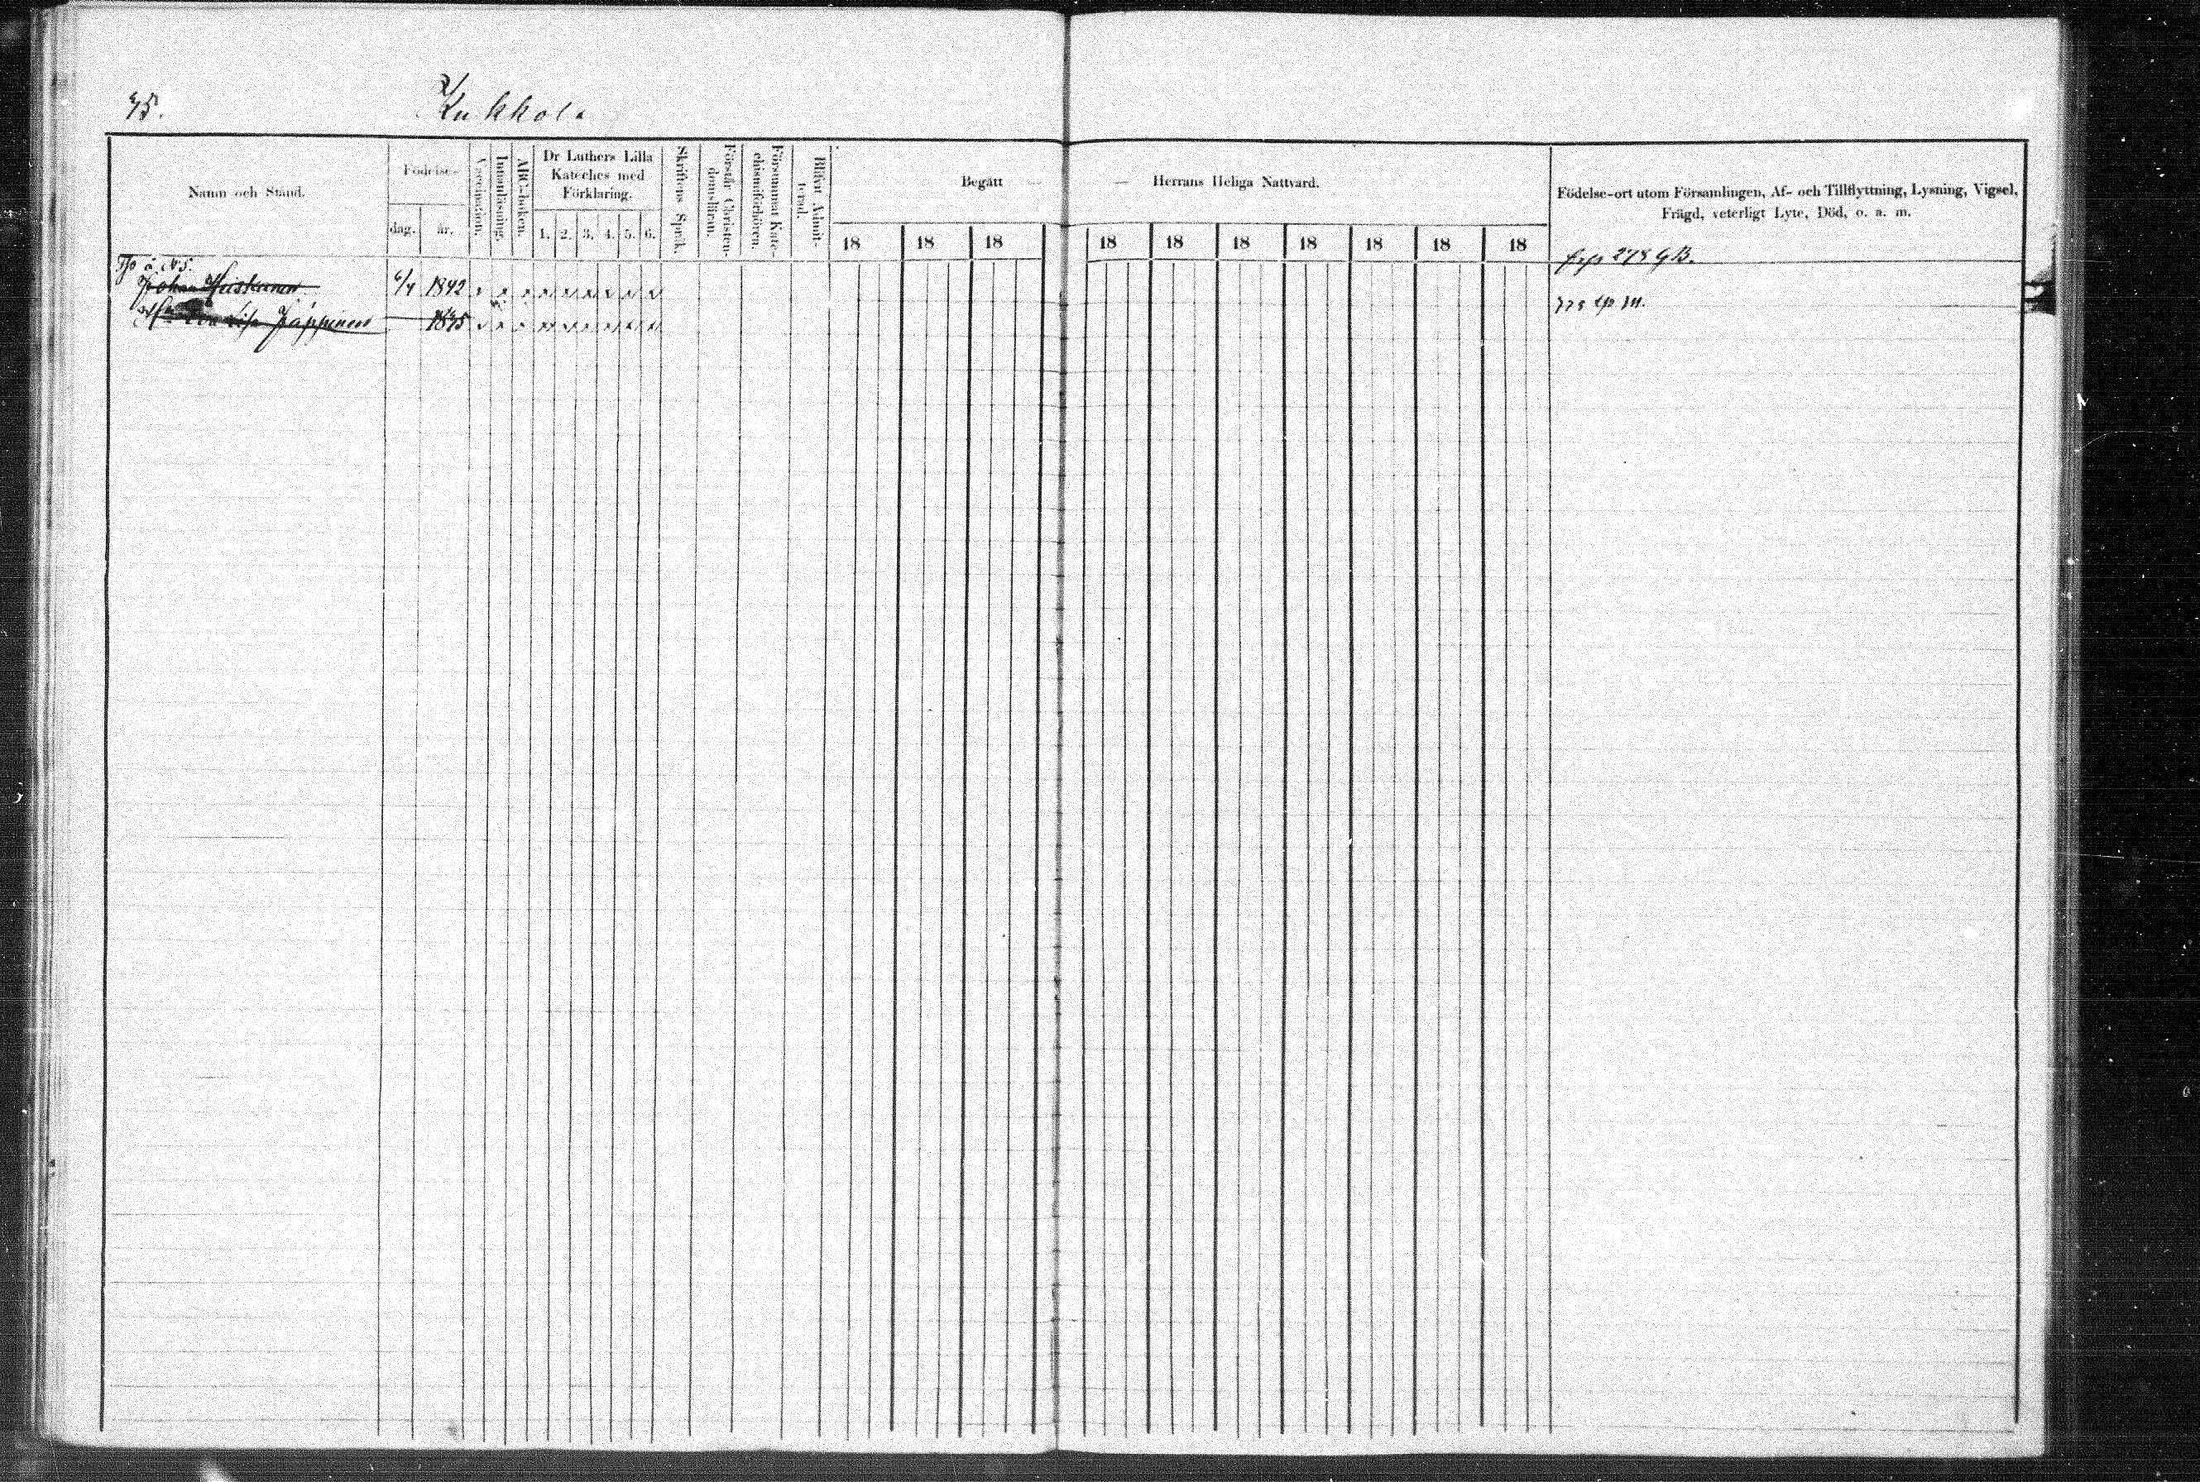 75.
Kukkola
Namn och Stånd.
Födelse-
dag.
år.
Innanläsning.
ABC-boken.
Dr Luthers Lilla
Kateches med
Förklaring.
1. 2. 3. 4. 5. 6.
Skriftens Språk.
Förstår Christen-
domsläran.
Försummat Kate-
chismiförhören.
Blifvit Admit-
terad.
Begått — — Herrans Heliga Nattvard.
18 18 18 18 18 18 18 18 18 18
Födelse-ort utom Församlingen, Af- och Tillflyttning, Lysning, Vigsel,
Frägd, veterligt Lyte, Död, o. a. m.
å N 5.
Johan Huiskunen 6/4 1842
Lisa Päppinen 1845
278 GB.